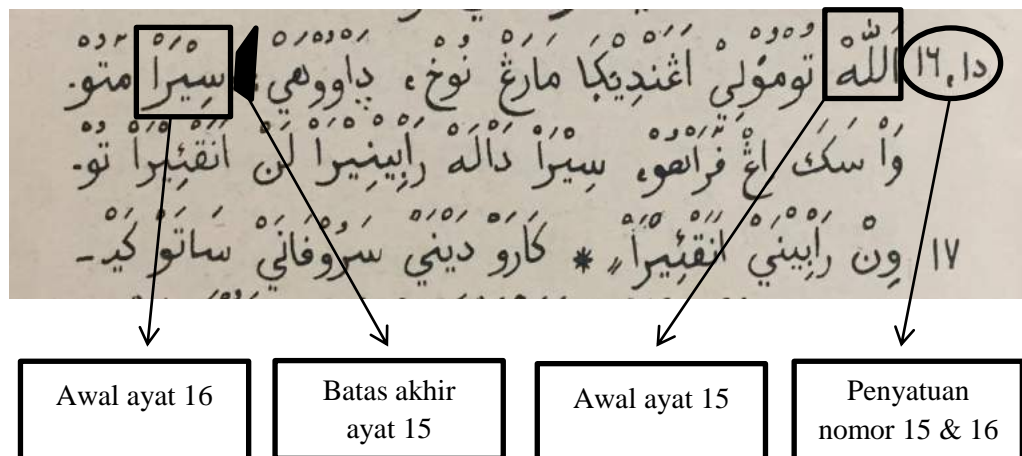 ١٥، ١٦ اَللّٰهْ تُوْمُوْلِيْ اَڠَنْدِيْكَا مَارَڠْ نُوْخ، دَاوُوْهَيْ: سِيْرَا مَتُوْ-
وَا سَكَ اِڠْ فْرَاهُو، سِيْرَا دَالَهْ رَابِيْنِيْرَا لَنْ اَنَقْئِيْرَا تُوْ-
١٧ وِنْ رَابِيْنَيْ اَنَقْئِيْرَا * كَارَوْ دَيْنَيْ سَرُوْفَانَيْ سَاتَوْ كَيْـ-
Awal ayat 16
Batas akhir
ayat 15
Awal ayat 15
Penyatuan
nomor 15 & 16